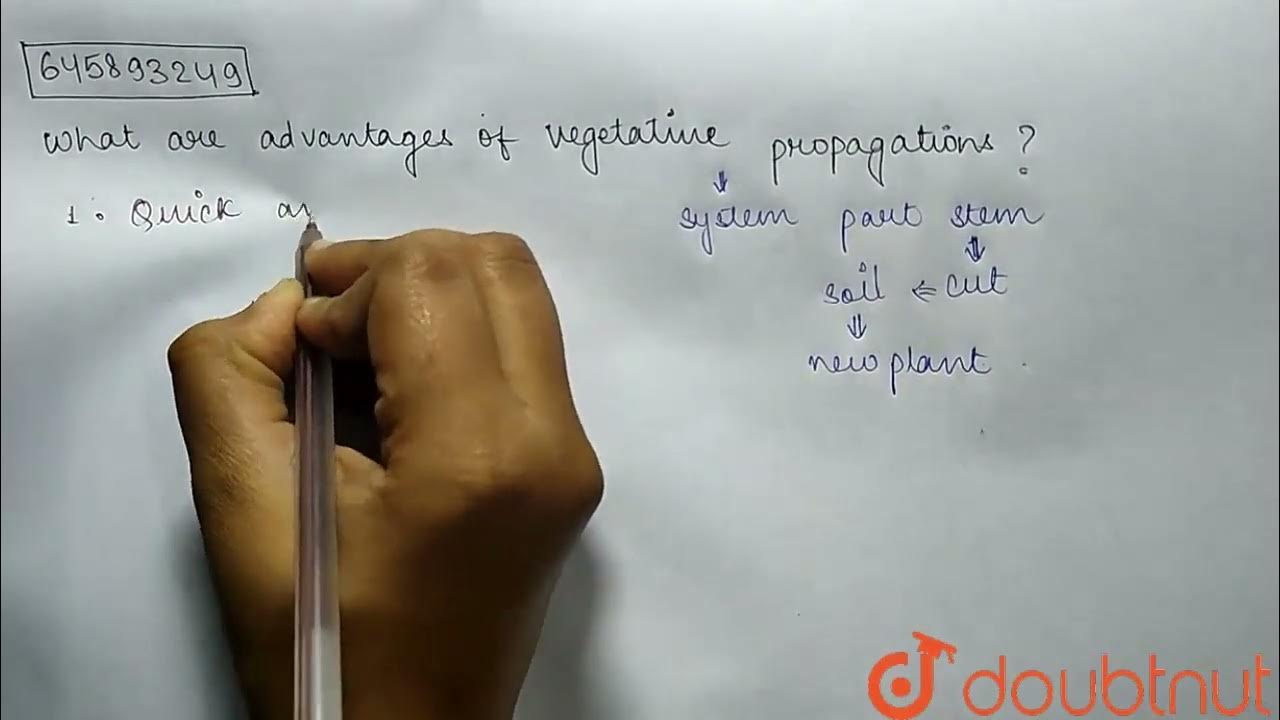 645893249
What are advantages of vegetative propagations ?
1. Quick an
system part stem
soil ⇐ cut
new plant
doubtnut